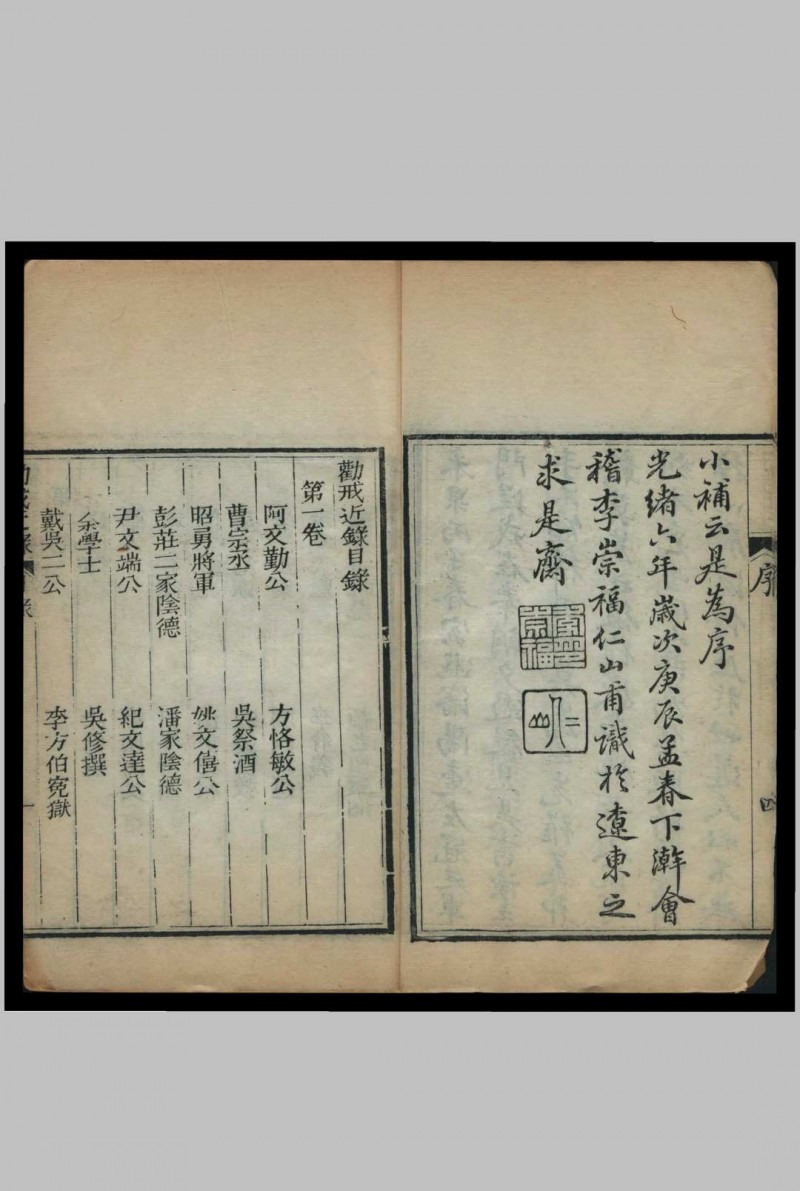 序
四
小補云是為序
光緒六年歲次庚辰孟春下澣會
稽李崇福仁山甫識於遼東之
求是齋
李崇福
仁山
勸戒近錄目錄
第一卷
阿文勤公 方恪敏公
曹宗丞 吳祭酒
昭勇將軍 姚文僖公
彭莊二家陰德 潘家陰德
尹文端公 紀文達公
余學士 吳修撰
戴吳二公 李方伯冤獄